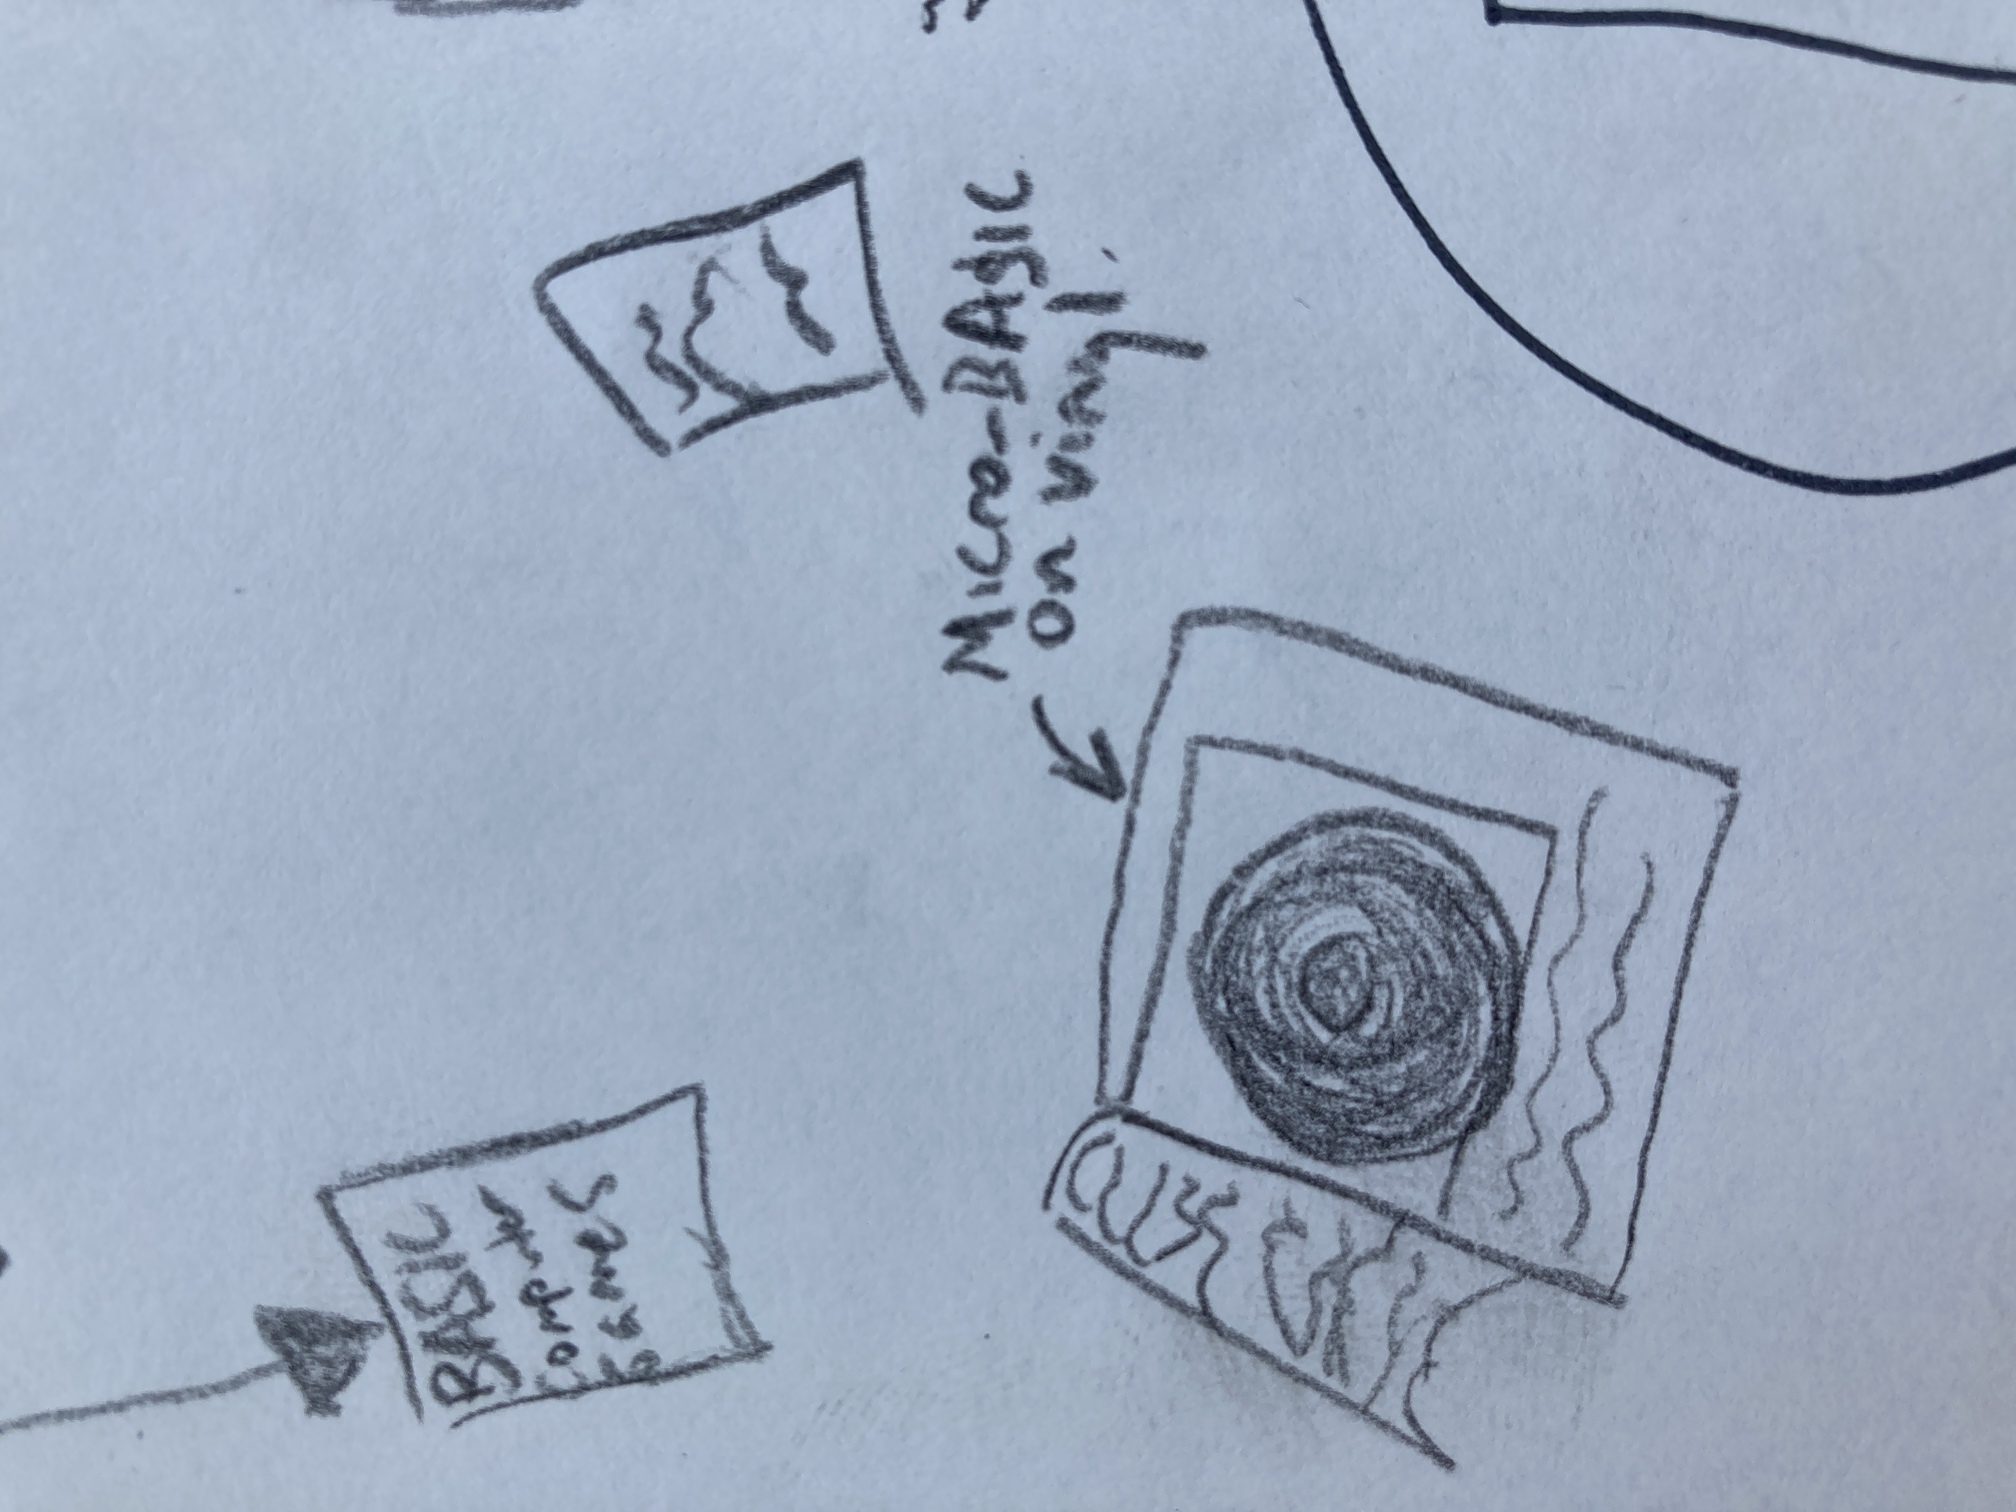 BASIC
Computer
Games
Micro-BASIC
on vinyl.